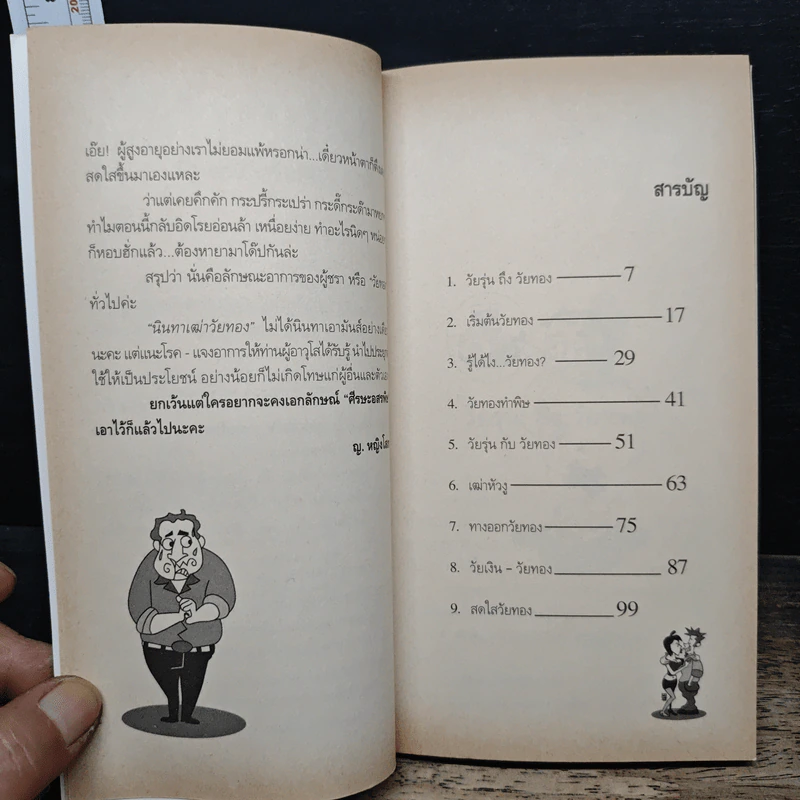 เอ๊ย! ผู้สูงอายุอย่างเราไม่ยอมแพ้หรอกน่า...เดี๋ยวหน้าตาก็
สดใสขึ้นมาเองแหละ
ว่าแต่เคยคึกคัก กระปรี้กระเปร่า กระดี๊กระด๊ามา
ทำไมตอนนี้กลับอิดโรยอ่อนล้า เหนื่อยง่าย ทำอะไรนิดๆ
ก็หอบฮั่กแล้ว...ต้องหายามาโด๊ปกันล่ะ
สรุปว่า นั่นคือลักษณะอาการของผู้ชรา หรือ
ทั่วไปค่ะ
"นินทาเฒ่าวัยทอง" ไม่ได้นินทาเอามันส์อย่าง
นะคะ แต่แนะโรค - แจงอาการให้ท่านผู้อาวุโสได้รับรู้ นำไป
ใช้ให้เป็นประโยชน์ อย่างน้อยก็ไม่เกิดโทษแก่ผู้อื่นและ
ยกเว้นแต่ใครอยากจะคงเอกลักษณ์
เอาไว้ก็แล้วไปนะคะ
ญ. หญิง
สารบัญ
1. วัยรุ่น ถึง วัยทอง 7
2. เริ่มต้นวัยทอง 17
3. รู้ได้ไง...วัยทอง? 29
4. วัยทองทำพิษ 41
5. วัยรุ่น กับ วัยทอง 51
6. เฒ่าหัวงู 63
7. ทางออกวัยทอง 75
8. วัยเงิน - วัยทอง 87
9. สดใสวัยทอง 99